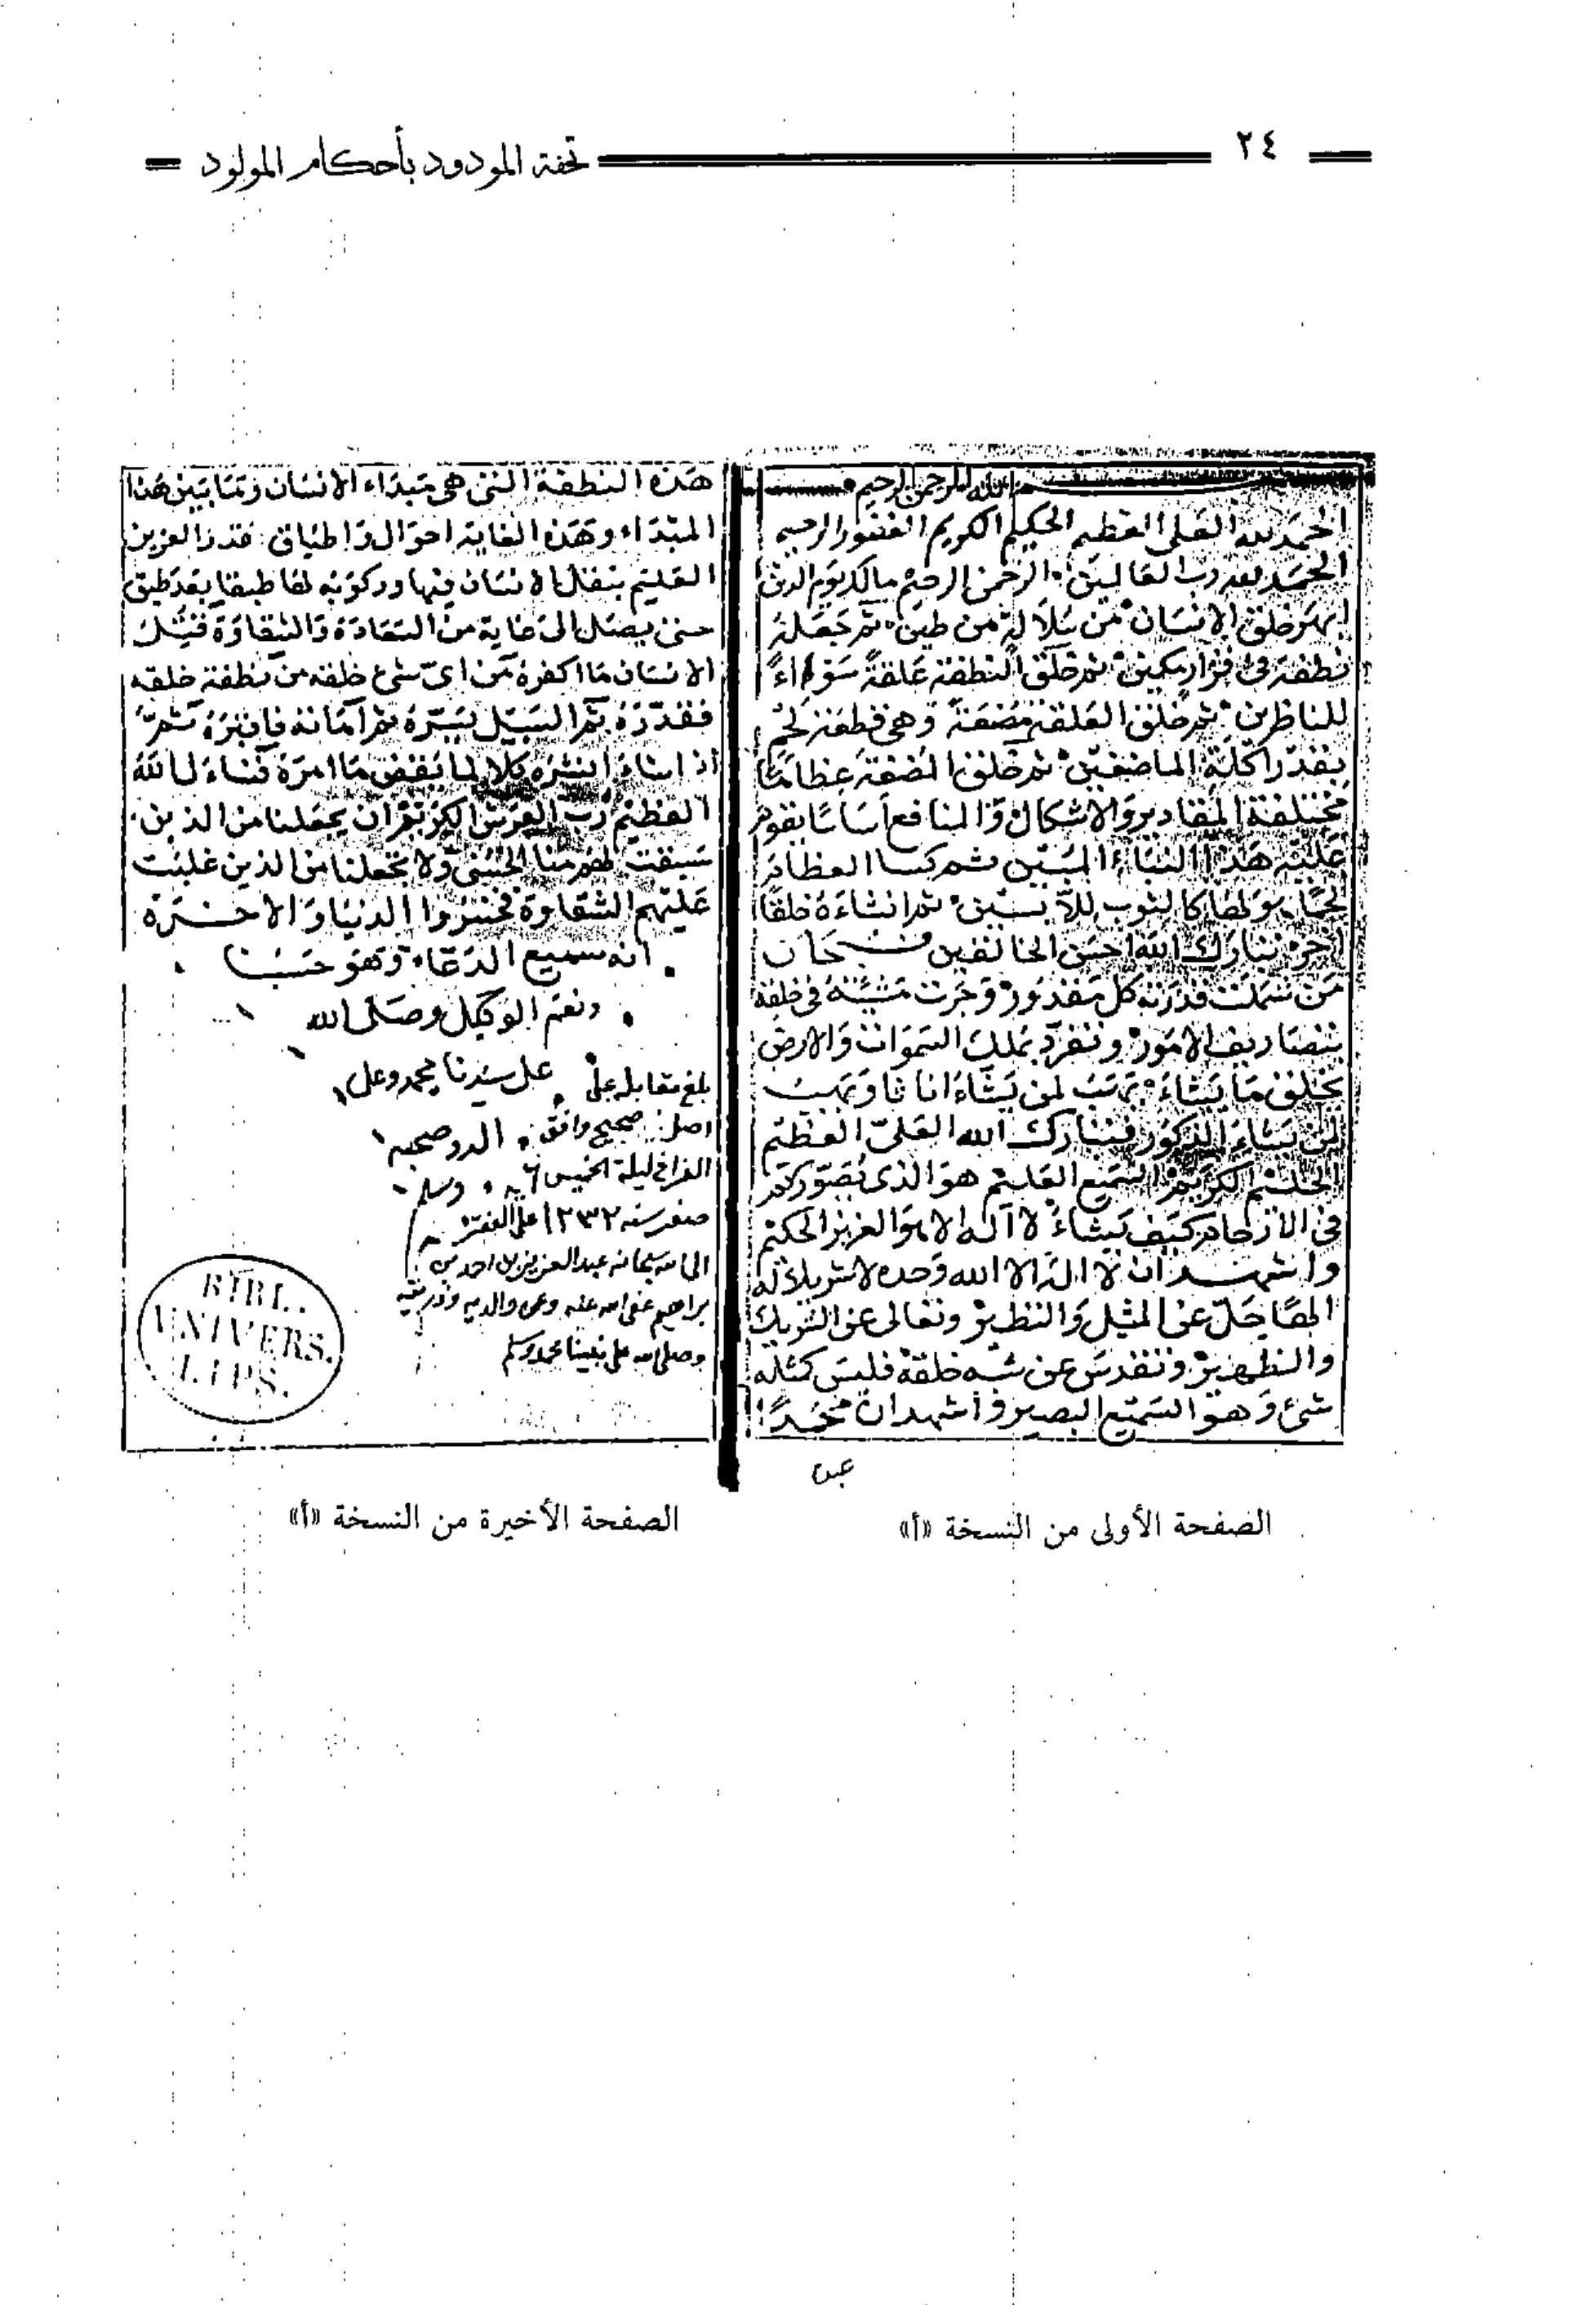 ٢٤
تحفة المودود بأحكام المولود
بسم الله الرحمن الرحيم
الحمد لله العلي العظيم الحكيم الكريم الغفور الرحيم
الحمد لله رب العالمين الرحمن الرحيم مالك يوم الدين
خلق الانسان من سلالة من طين ثم جعله
نطفة في قرار مكين ثم خلق النطفة علقة سوداء
للناظرين ثم خلق العلقة مضغة وهي قطعة لحم
بقدر اكلة الماضغين ثم خلق المضغة عظاما
مختلفة المقادير والاشكال والمنافع اساسا يقوم
عليه هذا البناء المبين ثم كسا العظام
لحما هو لها كالثوب للابسين ثم انشاءه خلقا
اخر فتبارك الله احسن الخالقين فسبحان
من شملت قدرته كل مقدور وجرت مشيئته في خلقه
بتصاريف الامور وتفرد بملك السموات والارض
يخلق ما يشاء يهب لمن يشاء اناثا ويهب
لمن يشاء الذكور فتبارك الله العلي العظيم
الحليم الكريم السميع العليم هو الذي يصوركم
في الارحام كيف يشاء لا آله الا هو العزيز الحكيم
واشهد ان لا اله الا الله وحده لا شريك له
الها جل عن المثيل والنظير وتعالى عن الشريك
والظهير وتقدس عن شبه خلقه فليس كمثله
شئ وهو السميع البصير واشهد ان محمدا
عبد
الصفحة الأولى من النسخة «أ»
هذه النطفة التي هي مبداء الانسان وما بين هذا
المبتداء وهذه الغاية احوال واطباق قدر العزيز
العليم بنقل الانسان فيها وركوبه لها طبقا بعد طبق
حتى يصل الى غاية من السعادة والشقاوة قتل
الانسان ما اكفره من اي شئ خلقه من نطفة خلقه
فقدره ثم السبيل يسره ثم اماته فاقبره ثم
اذا شاء انشره كلا لما يقض ما امره فنساءل الله
العظيم رب العرش الكريم ان يجعلنا من الذين
سبقت لهم منا الحسنى ولا يجعلنا من الذين غلبت
عليهم الشقاوة فخسروا الدنيا والاخرة
انه سميع الدعاء وهو حسبنا
ونعم الوكيل وصلى الله
على سيدنا محمد وعلى
اله وصحبه
وسلم
بلغ مقابله على
اصل صحيح وافق
الفراغ ليلة الخميس ٦
صفر سنه ١٢٣٢ على الفقير
الى الله سبحانه عبد العزيز بن احمد بن
براهيم عفى الله عنه وعن والديه وذريته
وصلى الله على نبينا محمد وسلم
BIBL.
UNIVERS.
LIPS.
الصفحة الأخيرة من النسخة «أ»